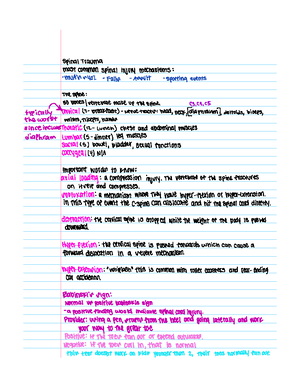 Spinal Trauma
most common spinal injury mechanisms:
- motor veh - falls - assult - sporting events
The spine:
33 bones/vertebrae make up the spine. C3, C4, C5
typically
the worst
since includes
diaphram
Cervical (7 - head, neck, [diaphragm], deltoids, biceps,
wrists, triceps, hands
Thoracic (12 - chest and abdominal muscles
Lumbar (5 - leg muscles
Sacral (5) bowel, bladder, sexual functions
Coccygeal (4) N/A
Important words to know:
axial loading: a compression injury. The vertebrae of the spine fractures
on itself and compresses.
a mechanism where they have hyper-flexion or hyper-extension.
In this type of event the C-spine can dislocate and hit the spinal cord directly.
distraction: the cervical spine is stopped while the weight of the body is pulled
downward.
Hyper-flexion: the cervical spine is forced forwards which can cause a
forward dislocation in a vehicle mechanism.
Hyper-Extension: "whiplash" this is common with roller coasters and rear-ending
car accident.
Babinski's Sign:
Normal or positive babinski sign
- a positive finding would indicate spinal cord injury.
Provider: using a pen, from the heel and going laterally and work
your way to the great toe
Positive: if the toes fan out or extend outward.
Negative: if the toes curl in, that is normal
- this test doesn't work on kids younger than 2, their toes normally fan out